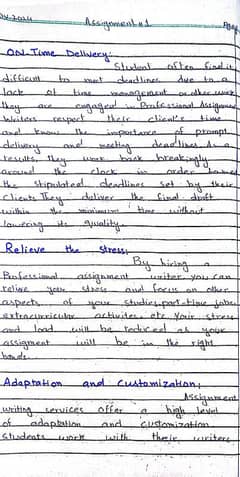 Assignment #1
ON-Time Delivery:
Student often find it
difficult to met deadlines due to a
lack of time management or other work
they are engaged in. Professional Assignment
Writers respect their client's time
and know the importance of prompt
delivery and meeting deadlines. As a
results, they work back breakingly
around the clock in order to meet
the stipulated deadlines set by their
Clients They deliver the final draft
within the minimum time without
lowering its quality.
Relieve the stress:
By hiring a
Professional assignment writer you can
relive your stress and focus on other
aspects of your studies, part-time jobs,
extracurricular activites etc your stress
and load will be reduced as your
assigment will be in the right
hands.
Adaptation and Customization:
Assignment
writing services offer a high level
of adaptation and customization
students work with their writers